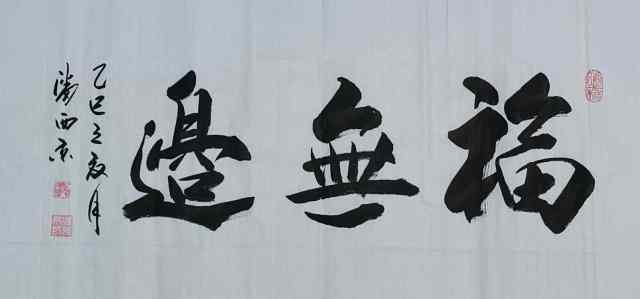 福無邊
乙巳之夏月
西京